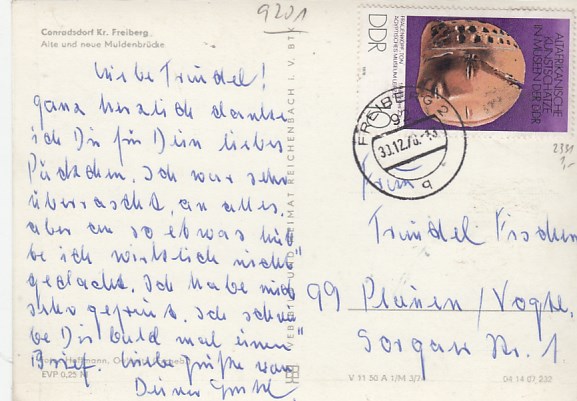 9201
Conradsdorf Kr. Freiberg
Alte und neue Muldenbrücke
Liebe Trundel!
ganz herzlich danke
ich Dir für Dein liebes
Päckchen. Ich war sehr
überrascht, an alles,
aber an so etwas hab
be ich wirklich nicht
gedacht. Ich habe mich
sehr gefreut. Ich schrei
be Dir bald mal einen
Brief. Liebe Grüße von
Deiner
EVP 0,25 M
VEB BILD UND HEIMAT REICHENBACH I. V. BTK
DDR
FRAUENKOPF, TON
ÄGYPTISCHES MUSEUM
ALTAFRIKANISCHE
KUNSTSCHÄTZE
IN MUSEEN DER DDR
FREIBERG
92
30.12.76
a
2331
1,-
Frau
Trundel Fischer
99 Plauen/Vogtl.
Sorgaer Str. 1
V 11 50 A 1/M 3/76
04 14 07 232